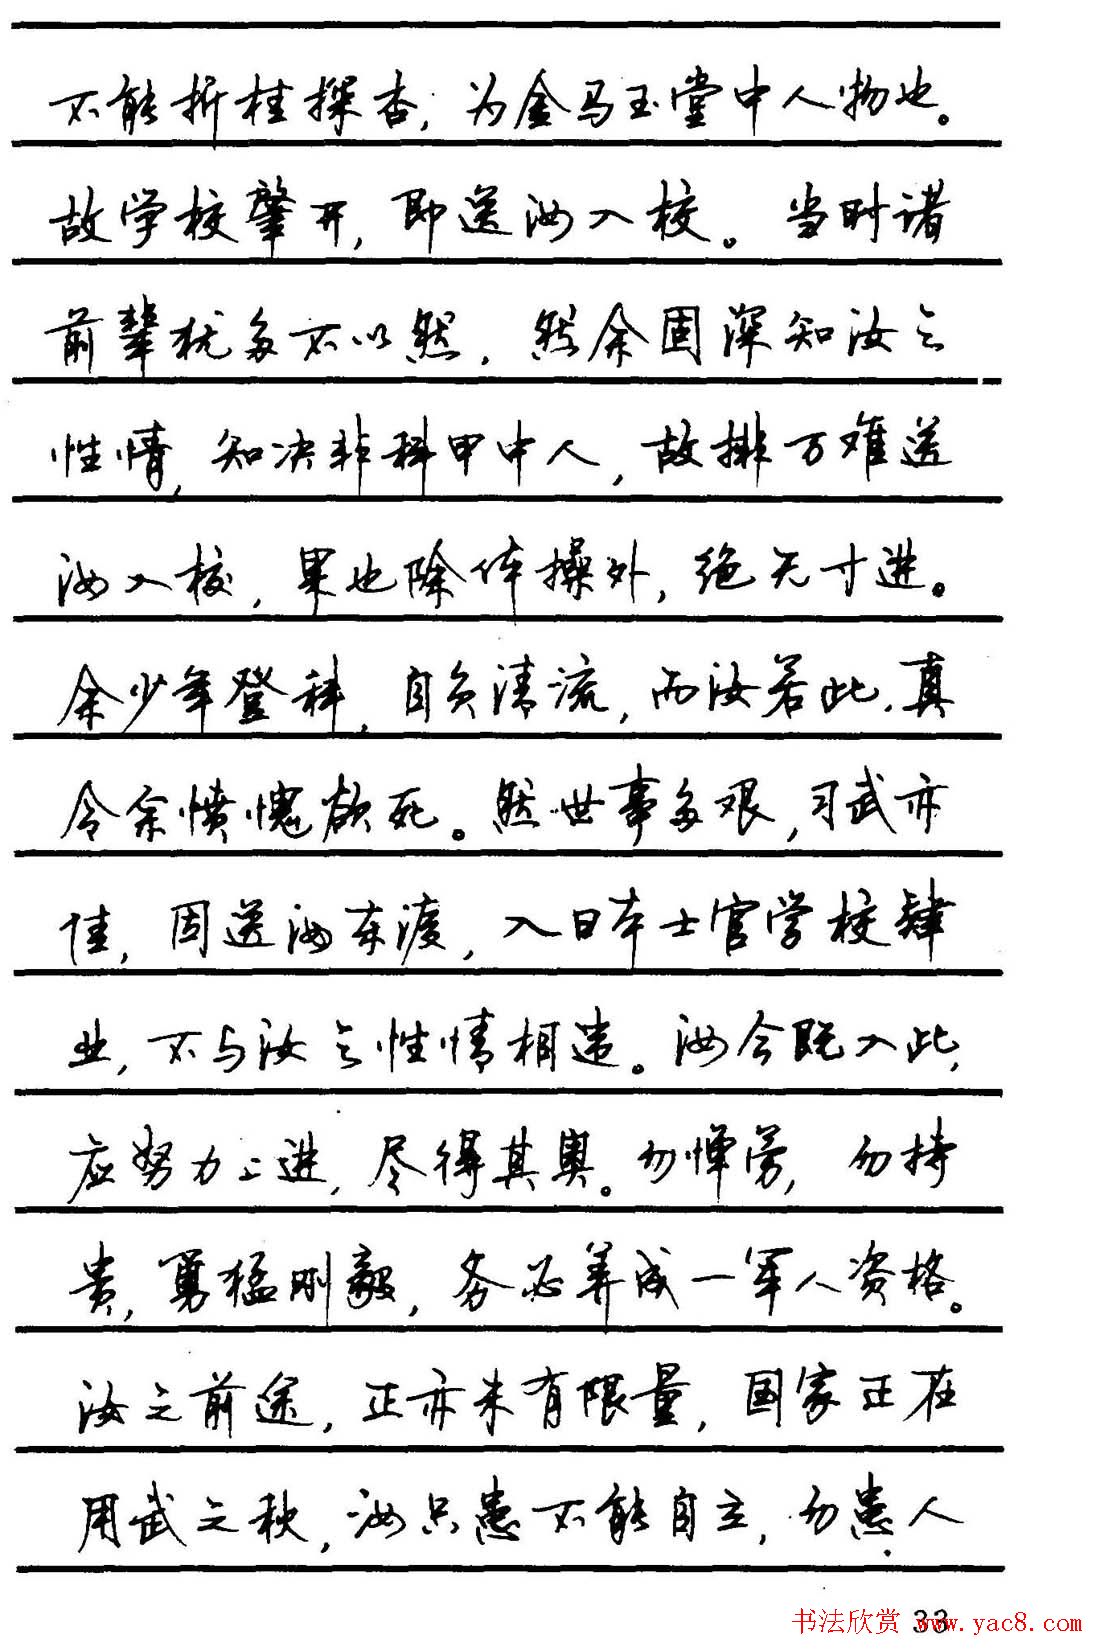 不能折桂探杏，为金马玉堂中人物也。
故学校肇开，即送汝入校。当时诸
前辈犹多不以然，然余固深知汝之
性情，知决非科甲中人，故排万难送
汝入校，果也除体操外，绝无寸进。
余少年登科，自负清流，而汝若此，真
令余愤愧欲死。然世事多艰，习武亦
佳，因送汝东渡，入日本士官学校肄
业，不与汝之性情相违。汝今既入此，
应努力上进，尽得其奥。勿惮劳，勿恃
贵，勇猛刚毅，务必养成一军人资格。
汝之前途，正亦未有限量，国家正在
用武之秋，汝只患不能自立，勿患人
33
书法欣赏 www.yac8.com